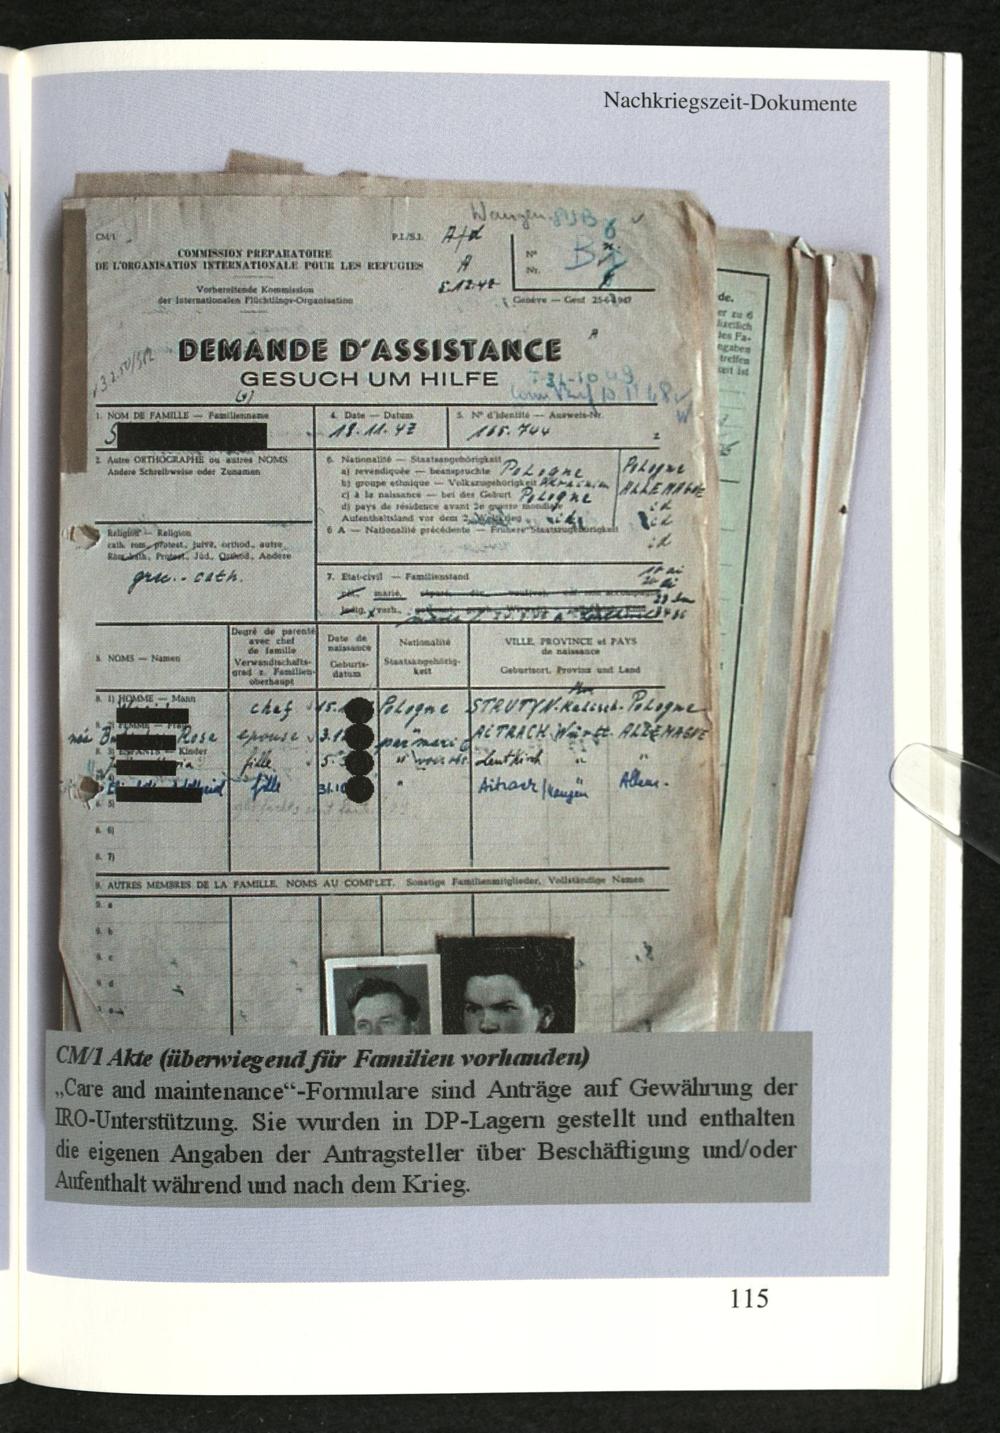 Nachkriegszeit-Dokumente
Wangen
CM/1
P.I./S.I.
A
COMMISSION PREPARATOIRE
DE L'ORGANISATION INTERNATIONALE POUR LES REFUGIES
Vorbereitende Kommission
der Internationalen Flüchtlings-Organisation
5.12.47
N°
Nr.
Genève — Genf
DEMANDE D'ASSISTANCE
GESUCH UM HILFE
1. NOM DE FAMILLE — Familienname
S
4. Date — Datum
18.11.47
5. N° d'identité — Ausweis-Nr.
165.744
2. Autre ORTHOGRAPHE ou autres NOMS
Andere Schreibweise oder Zunamen
6. Nationalité — Staatsangehörigkeit
a) revendiquée — beanspruchte Pologne Pologne
b) groupe ethnique — Volkszugehörigkeit Ukrainien ALLEMAGNE
c) à la naissance — bei des Geburt Pologne id
d) pays de résidence avant 2e guerre mondiale
Aufenthaltsland vor dem 2. Weltkrieg id id
6 A — Nationalité précédente — Frühere Staatszugehörigkeit id
Religion — Religion
cath. rom., protest., juive, orthod., autre
Röm.-kath., Protest., Jüd., Orthod., Andere
cath.
7. Etat-civil — Familienstand
marié,
ledig, verh.,
8. NOMS — Namen
Degré de parenté
avec chef
de famille
Verwandschafts-
grad z. Familien-
oberhaupt
Date de
naissance
Geburts-
datum
Nationalité
Staatsangehörig-
keit
VILLE, PROVINCE et PAYS
de naissance
Geburtsort, Provinz und Land
8. 1) HOMME — Mann
chef 15. Pologne STRUTYN. Pologne
née B Rose epouse 3.1 par mari ALTRACH. Württ. ALLEMAGNE
8. 3) ENFANTS — Kinder
fille 5. " Leutkirch " "
fille 31.10 " Aitrach/Wangen Allem.
8. 5)
8. 6)
8. 7)
9. AUTRES MEMBRES DE LA FAMILLE, NOMS AU COMPLET. Sonstige Familienmitglieder, Vollständige Namen
9. a
9. b
9. c
9. d
CM/1 Akte (überwiegend für Familien vorhanden)
„Care and maintenance“-Formulare sind Anträge auf Gewährung der
IRO-Unterstützung. Sie wurden in DP-Lagern gestellt und enthalten
die eigenen Angaben der Antragsteller über Beschäftigung und/oder
Aufenthalt während und nach dem Krieg.
115